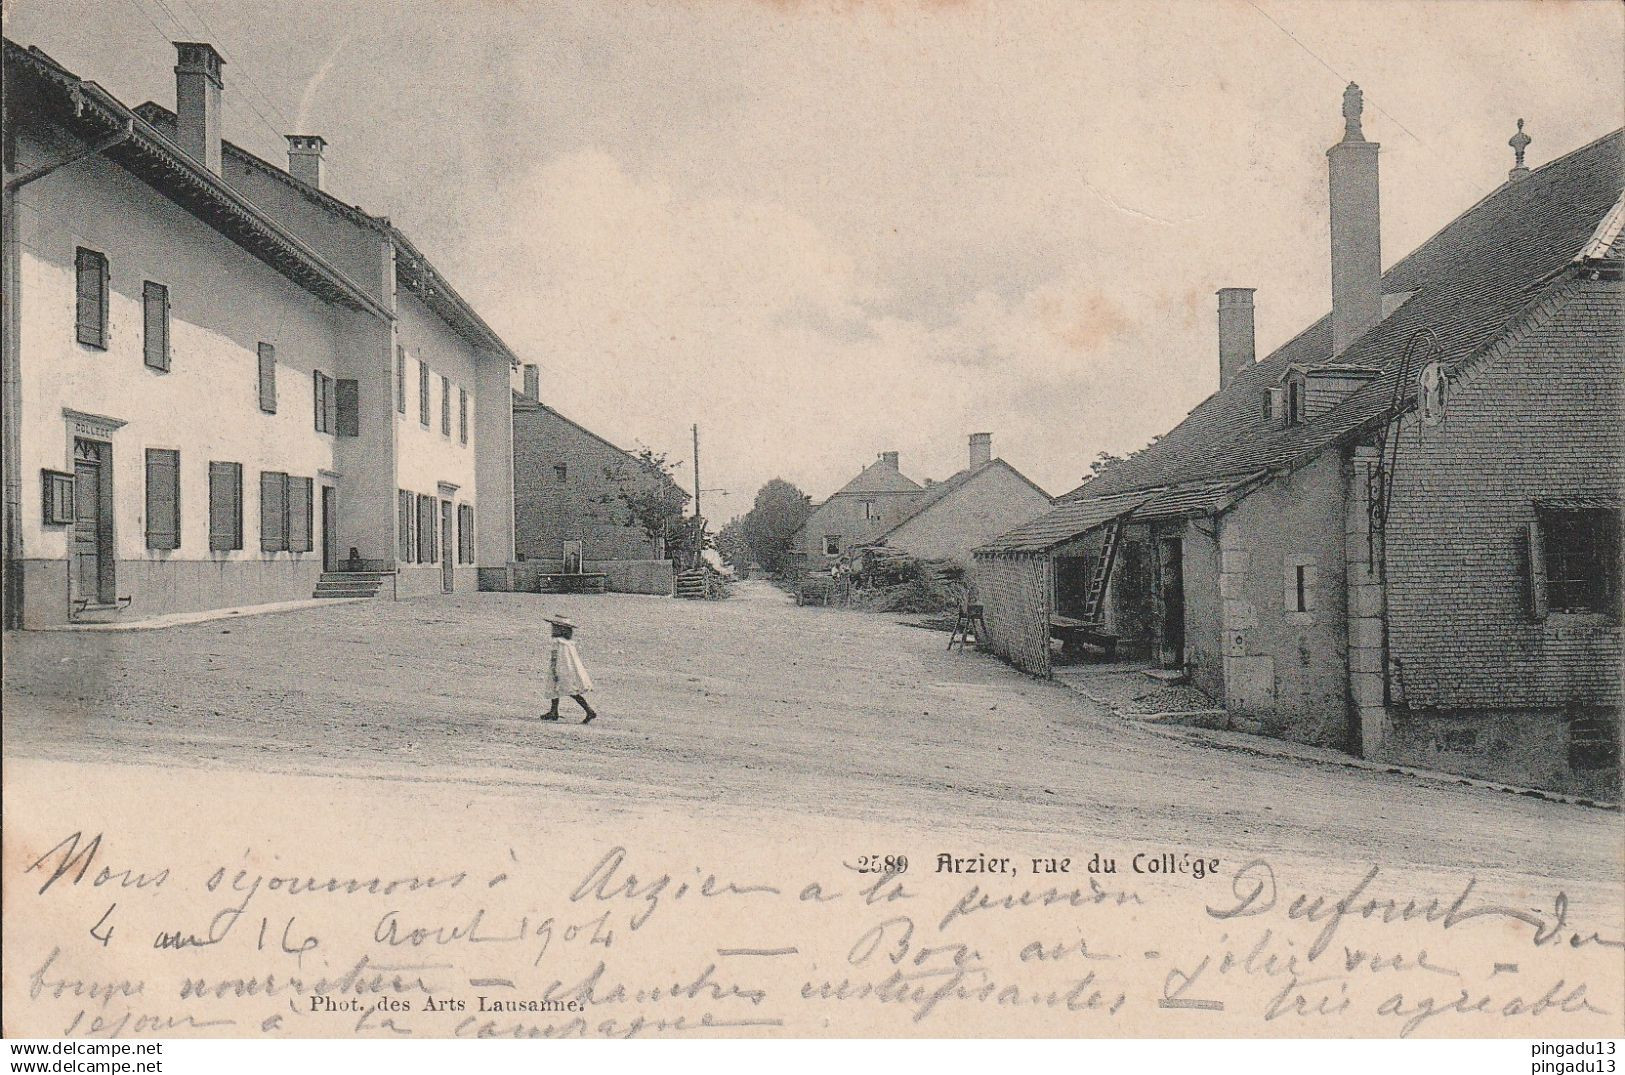 COLLEGE
2589 Arzier, rue du Collége
Nous séjournons à Arzier a la pension Dufour Du
4 au 16 Aout 1904 — Bon air - jolie vue -
bonne nourriture — chambres insuffisantes — très agréable
Phot. des Arts Lausanne.
séjour a la campagne
www.delcampe.net
www.delcampe.net
pingadu13
pingadu13